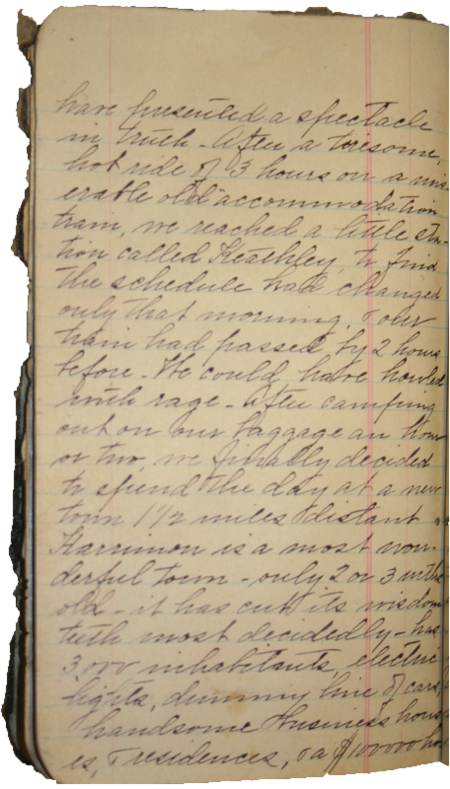 have presented a spectacle
in truth - After a tiresome,
hot ride of 3 hours on a mis-
erable old "accommodation
train, we reached a little sta-
tion called Keathley, to find
the schedule had changed
only that morning, & our
train had passed by 2 hours
before - We could have howled
with rage - After camping
out on our baggage an hour
or two, we finally decided
to spend the day at a new
town 1 1/2 miles distant
Harrimon is a most won-
derful town - only 2 or 3 mths
old - it has cut its wisdom
teeth most decidedly - has
3,000 inhabitants, electric
lights, dummy line of cars,
handsome business hous-
es, & residences, & a $100000 ho